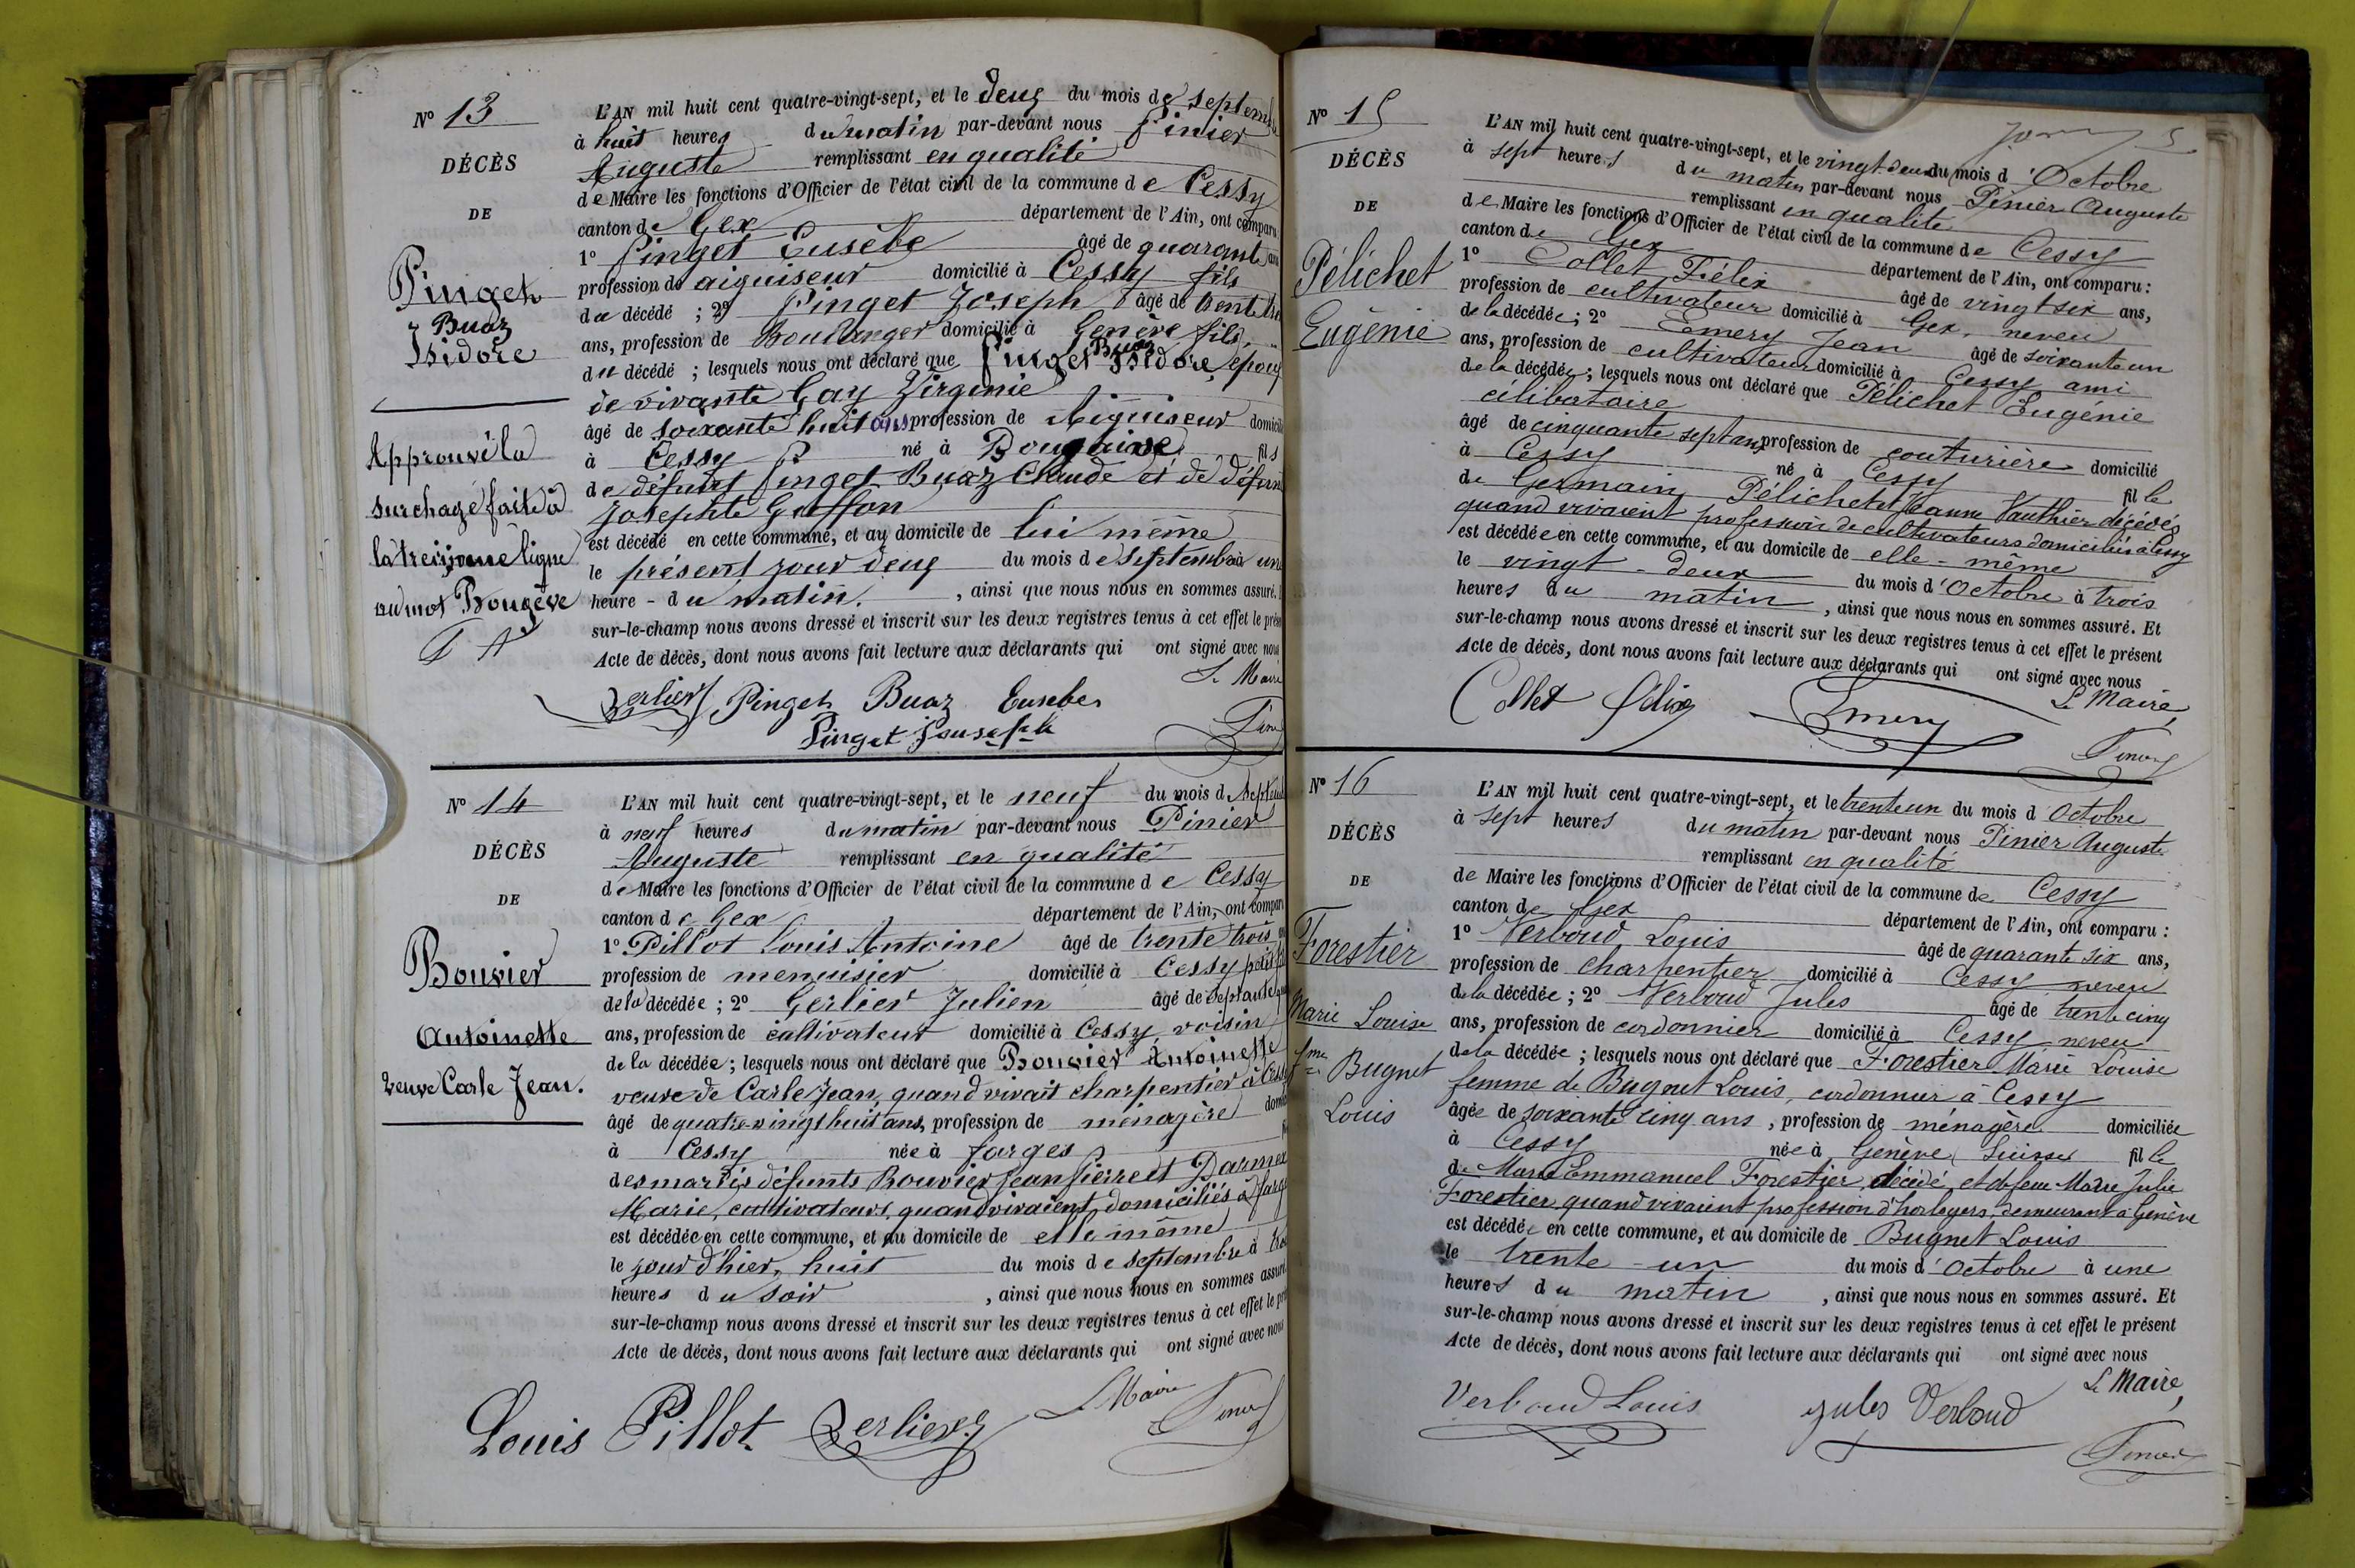 N° 13
DÉCÈS
DE
Pinget
Buaz
Isidore
Approuvé la
surchage faite à
la treizième ligne
au mot Bougève
P A
L'AN mil huit cent quatre-vingt-sept, et le deux du mois de septem
à huit heures du matin par-devant nous Pinier
Auguste remplissant en qualité
de Maire les fonctions d'Officier de l'état civil de la commune de Cessy
canton de Gex département de l'Ain, ont comparu
1° Pinget Eusèbe âgé de quarante ans
profession de aiguiseur domicilié à Cessy fils
du décédé ; 2° Pinget Joseph âgé de trente
ans, profession de Boulanger domicilié à Genève fils,
du décédé ; lesquels nous ont déclaré que Pinget Buaz Isidore, epoux
de vivante Gay Virginie
âgé de soixante huit ans profession de Aiguiseur domicilié
à Cessy né à fils
de défunt Pinget Buaz Claude et de défunte
Josephte Goffon
est décédé en cette commune, et au domicile de lui même
le présent jour deux du mois de septembre à une
heure - du matin. , ainsi que nous nous en sommes assuré.
sur-le-champ nous avons dressé et inscrit sur les deux registres tenus à cet effet le prés
Acte de décès, dont nous avons fait lecture aux déclarants qui ont signé avec nous
Le Maire
Gerlier Pinget Buaz Eusebe
Pinget Jouseph Pinier
N° 14
DÉCÈS
DE
Bouvier
Antoinette
veuve Carle Jean.
L'AN mil huit cent quatre-vingt-sept, et le neuf du mois de Septem
à neuf heures du matin par-devant nous Pinier
Auguste remplissant en qualité
de Maire les fonctions d'Officier de l'état civil de la commune de Cessy
canton de Gex département de l'Ain, ont compar
1° Pillot Louis Antoine âgé de trente trois
profession de menuisier domicilié à Cessy petit
de la décédée ; 2° Gerlier Julien âgé de septante
ans, profession de cultivateur domicilié à Cessy, voisin
de la décédée ; lesquels nous ont déclaré que Bouvier Antoinette
veuve de Carle Jean, quand vivait charpentier à Cessy
âgé de quatre-vingt huit ans, profession de ménagère domi
à Cessy née à Farges
des mariés défunts Bouvier Jean Pierre et Darmex
Marie, cultivateurs, quand vivaient domiciliés à Farg
est décédée en cette commune, et au domicile de elle même
le jour d'hier, huit du mois de septembre à
heures du soir , ainsi que nous nous en sommes assuré
sur-le-champ nous avons dressé et inscrit sur les deux registres tenus à cet effet le pré
Acte de décès, dont nous avons fait lecture aux déclarants qui ont signé avec nous
Louis Pillot Gerlier Le Maire Pinier
N° 15
DÉCÈS
DE
Pélichet
Eugénie
L'AN mil huit cent quatre-vingt-sept, et le vingt-deux du mois d'Octobre
à sept heures du matin par-devant nous Pinier Auguste
remplissant en qualité
de Maire les fonctions d'Officier de l'état civil de la commune de Cessy
canton de Gex département de l'Ain, ont comparu :
1° Collet Félix âgé de vingt six ans,
profession de cultivateur domicilié à Gex, neveu
de la décédée ; 2° Emery Jean âgé de soixante un
ans, profession de cultivateur domicilié à Cessy ami
de la décédée ; lesquels nous ont déclaré que Pélichet Eugénie
célibataire
âgé de cinquante sept ans profession de couturière domicilié
à Cessy né à Cessy fille
de Germain Pélichet et Jeanne Vauthier décédés
quand vivaient profession de cultivateurs domiciliés à Cessy
est décédée en cette commune, et au domicile de elle-même
le vingt-deux du mois d'Octobre à trois
heures du matin , ainsi que nous nous en sommes assuré. Et
sur-le-champ nous avons dressé et inscrit sur les deux registres tenus à cet effet le présent
Acte de décès, dont nous avons fait lecture aux déclarants qui ont signé avec nous
Le Maire,
Collet Félix Emery Pinier
N° 16
DÉCÈS
DE
Forestier
Marie Louise
fme Bugnet
Louis
L'AN mil huit cent quatre-vingt-sept, et le trente un du mois d'Octobre
à sept heures du matin par-devant nous Pinier Auguste
remplissant en qualité
de Maire les fonctions d'Officier de l'état civil de la commune de Cessy
canton de Gex département de l'Ain, ont comparu :
1° Verboud Louis âgé de quarante six ans,
profession de charpentier domicilié à Cessy neveu
de la décédée ; 2° Verboud Jules âgé de trente cinq
ans, profession de cordonnier domicilié à Cessy neveu
de la décédée ; lesquels nous ont déclaré que Forestier Marie Louise
femme de Bugnet Louis, cordonnier à Cessy
âgée de soixante cinq ans, profession de ménagère domiciliée
à Cessy née à Genève Suisse fille
de Marc Emmanuel Forestier, décédé, et de feue Marie Julie
Forestier quand vivaient profession d'horlogers, demeurant à Genève
est décédée en cette commune, et au domicile de Bugnet Louis
le trente-un du mois d'octobre à une
heures du matin , ainsi que nous nous en sommes assuré. Et
sur-le-champ nous avons dressé et inscrit sur les deux registres tenus à cet effet le présent
Acte de décès, dont nous avons fait lecture aux déclarants qui ont signé avec nous
Le Maire,
Verboud Louis Jules Verboud Pinier